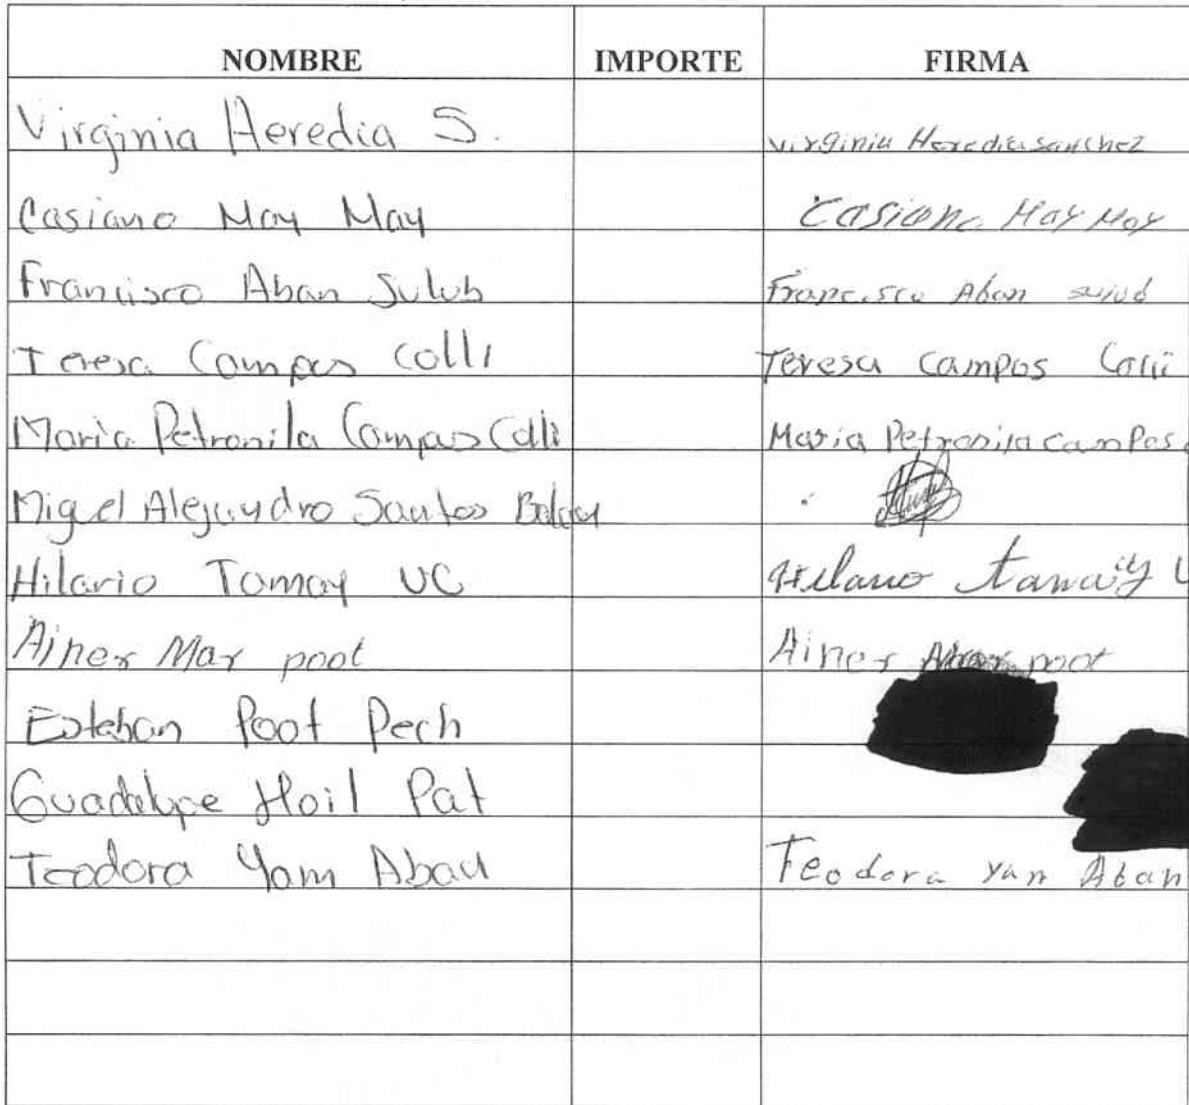 NOMBRE IMPORTE FIRMA
Virginia Heredia S. Virginia Heredia Sanchez
Casiano May May Casiano May May
Francisco Aban Sulub Francisco Aban sulub
Teresa Campos Colli Teresa Campos Colli
Maria Petronila Campos Colli Maria Petronila campos
Migel Alejandro Santos
Hilario Tamay UC Hilario Tamay U
Ainer Mar poot Ainer Mar poot
Esteban Poot Pech
Guadalupe Hoil Pat
Teodora Yam Aban Teodora Yan Aban